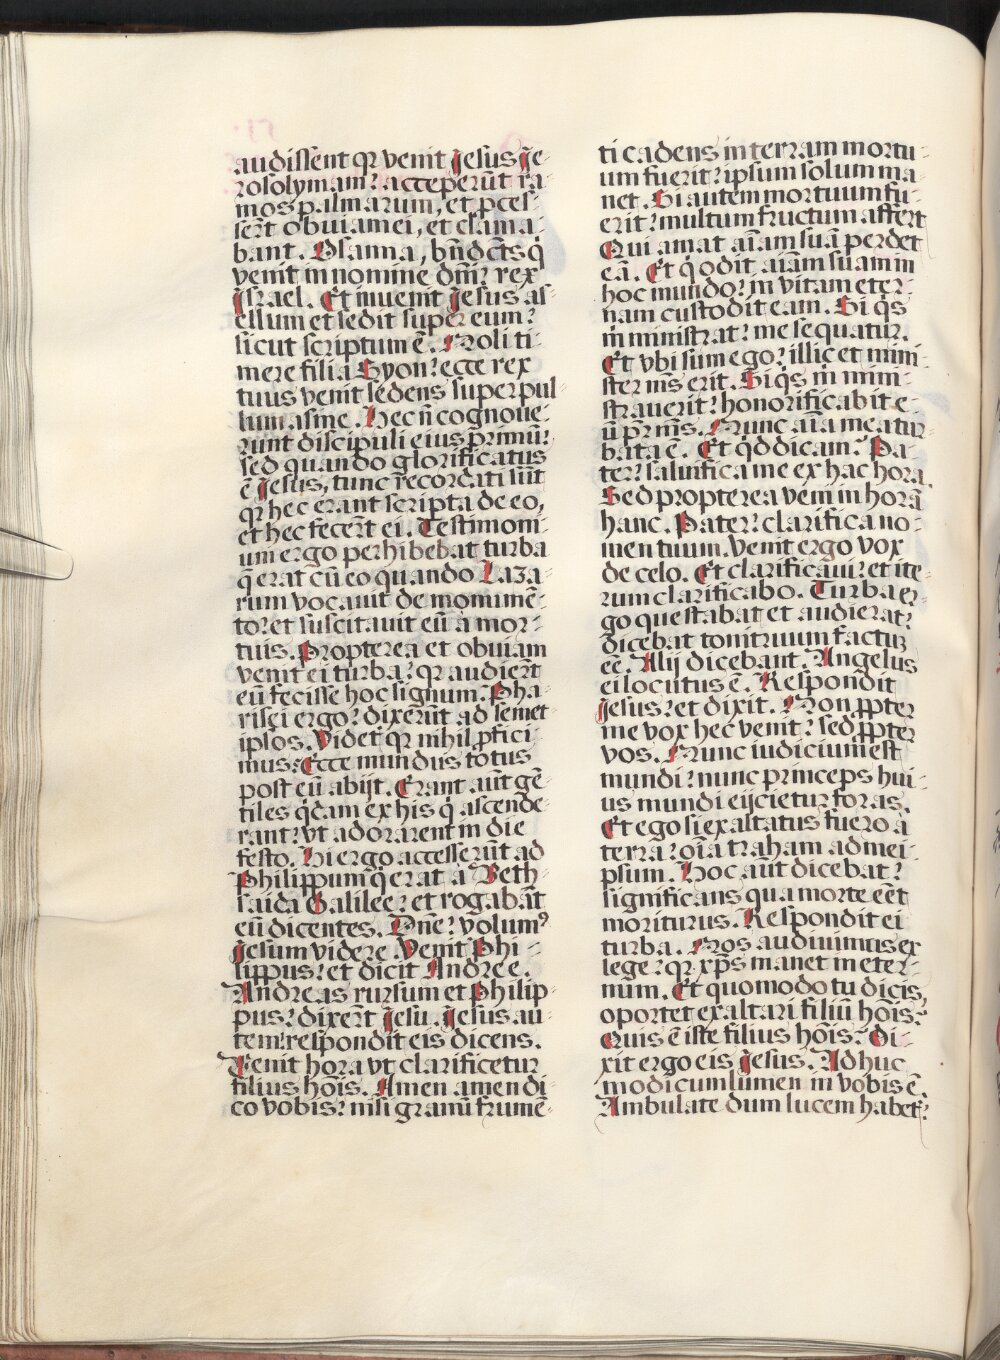 audissent qꝛ venit Jesus Je-
rosolymam: acceperūt ra-
mos palmarum, et pces-
serūt obuiam ei, et clama-
bant. Osanna, bn̄dctˢ q̇
venit in nomine dn̄i: rex
Israel. Et inuenit Jesus as-
ellum et sedit super eum:
sicut scriptum ē. Noli ti-
mere filia Syon: ecce rex
tuus venit sedens super pul-
lum asine. Hec n̄ cognoue-
runt discipuli eius primū:
sed quando glorificatus
ē Jesus, tunc recordati sūt
qꝛ hec erant scripta de eo,
et hec fecerūt ei. Testimoni-
um ergo perhibebat turba
q̄ erat cū eo quando Laza-
rum vocauit de monumē-
to: et suscitauit eū a mor-
tuis. Propterea et obuiam
venit ei turba: qꝛ audierūt
eū fecisse hoc signum. Pha-
risei ergo: dixerūt ad semet-
ipsos. Videt͛ qꝛ nihil ꝓfici-
mus: Ecce mundus totus
post eū abijt. Erant aūt gē-
tiles q̇dam ex his q̇ ascende-
rant: vt adorarent in die
festo. Hi ergo accesserūt ad
Philippum q̇ erat a Beth-
saida Galilee: et rogabāt
eū dicentes. Dn̄e: volumꝰ
Jesum videre. Venit Phi-
lippus: et dicit Andree.
Andreas rursum et Philip-
pus: dixerūt Jesu. Jesus au-
tem: respondit eis dicens.
Venit hora vt clarificetur
filius hoīs. Amen amen di-
co vobis: nisi granū frumē-
ti cadens in terram mortu-
um fuerit: ipsum solum ma-
net. Si autem mortuum fu-
erit: multum fructum affert
Qui amat aīam suā perdet
eā. Et q̇ odit aīam suam in
hoc mundo: in vitam eter-
nam custodit eam. Si q̇s
m̄ ministrat: me sequatur.
Et vbi sum ego: illic et mini-
ster ms erit. Si q̇s m̄ mini-
strauerit: honorificabit e-
ū pr̄ ms̄. Nunc aīa mea tur-
bata ē. Et q̇d dicam? Pa-
ter: saluifica me ex hac hora.
Sed propterea veni in horā
hanc. Pater: clarifica no-
men tuum. Venit ergo vox
de celo. Et clarificaui: et ite-
rum clarificabo. Turba er-
go que stabat et audierat:
dicebat tonitruum factuꝫ
eē. Alij dicebant. Angelus
ei locutus ē. Respondit
Jesus: et dixit. Non ꝓpter
me vox hec venit: sed ꝓpter
vos. Nunc iudicium est
mundi: nunc princeps hui-
us mundi eijcietur foras.
Et ego si exaltatus fuero a
terra: oīa traham ad mei-
psum. Hoc aūt dicebat:
significans qua morte eēt
moriturus. Respondit ei
turba. Nos audiuimus ex
lege: qꝛ xp̄s manet in eter-
num. Et quomodo tu dicis,
oportet exaltari filiū hoīs?
Quis ē iste filius hoīs? Di-
xit ergo eis Jesus. Adhuc
modicum lumen in vobis ē.
Ambulate dum lucem habet͛: